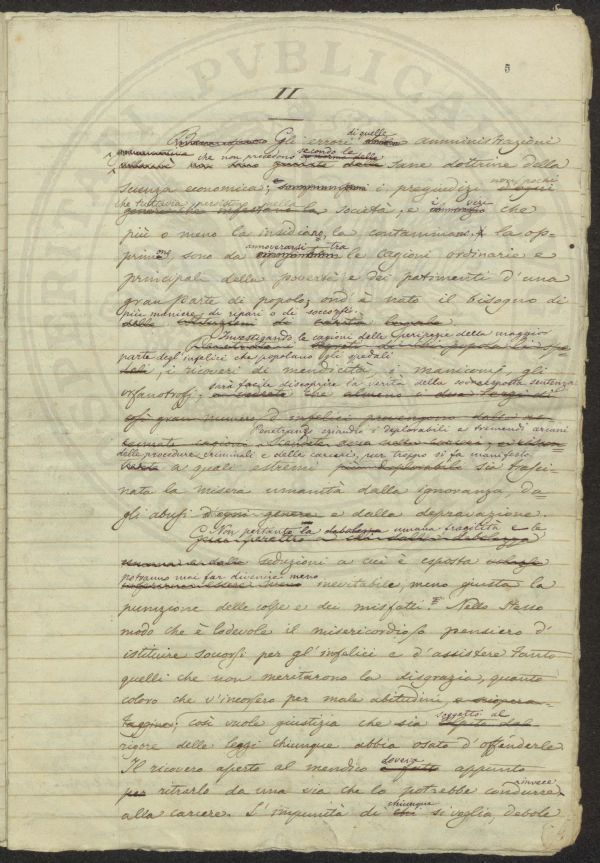 5
II
Gli errori di quelle amministrazioni
che non procedono secondo le sane dottrine della
scienza economica; i pregiudizi non pochi
che tuttavia persistono nella società, e i vizi che
più o meno la insidiano, la contaminano, la op-
primono, sono da annoverarsi tra le cagioni ordinarie e
principali della povertà e dei patimenti d'una
gran parte di popolo; ond'è nato il bisogno di
più maniere di ripari o di soccorsi.
Investigando le cagioni delle peripezie della maggior
parte degl'infelici che popolano gli ospedali
i ricoveri di mendicità, i manicomi, gli
orfanotrofj, sarà facile discoprire la verità della sovraesposta sentenza
Penetrando eziandio i deplorabili e tremendi arcani
delle procedure criminali e delle carceri, pur troppo si fa manifesto
a quali estremi sia trasci-
nata la misera umanità dalla ignoranza, da-
gli abusi e dalla depravazione.
Non pertanto la umana fragilità e le
seduzioni a cui è esposta
potranno mai far divenire meno
inevitabile, meno giusta la
punizione delle colpe e dei misfatti. Nello stesso
modo che è lodevole il misericordioso pensiero d'
istituire soccorsi per gl'infelici e d'assistere tanto
quelli che non meritarono la disgrazia, quanto
coloro che v'incorsero per male abitudini,
così vuole giustizia che sia soggetto al
rigore delle leggi chiunque abbia osato d'offenderle
Il ricovero aperto al mendico doveva appunto
ritrarlo da una via che lo potrebbe condurre invece
alla carcere. L'impunità di chiunque si voglia, debole